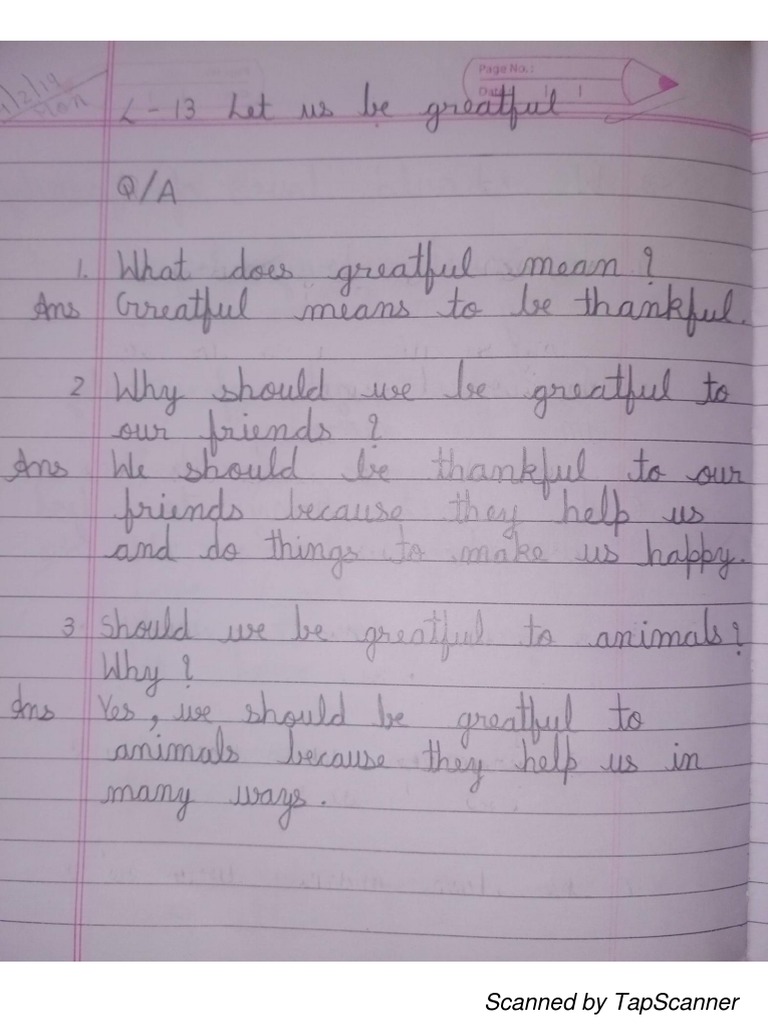 Page No.:
Date
Mon
L - 13 Let us be greatful
Q/A
1. What does greatful mean ?
Ans Greatful means to be thankful.
2 Why should we be greatful to
our friends ?
Ans We should be thankful to our
friends because they help us
and do things to make us happy.
3 Should we be greatful to animals?
Why ?
Ans Yes, we should be greatful to
animals because they help us in
many ways.
Scanned by TapScanner